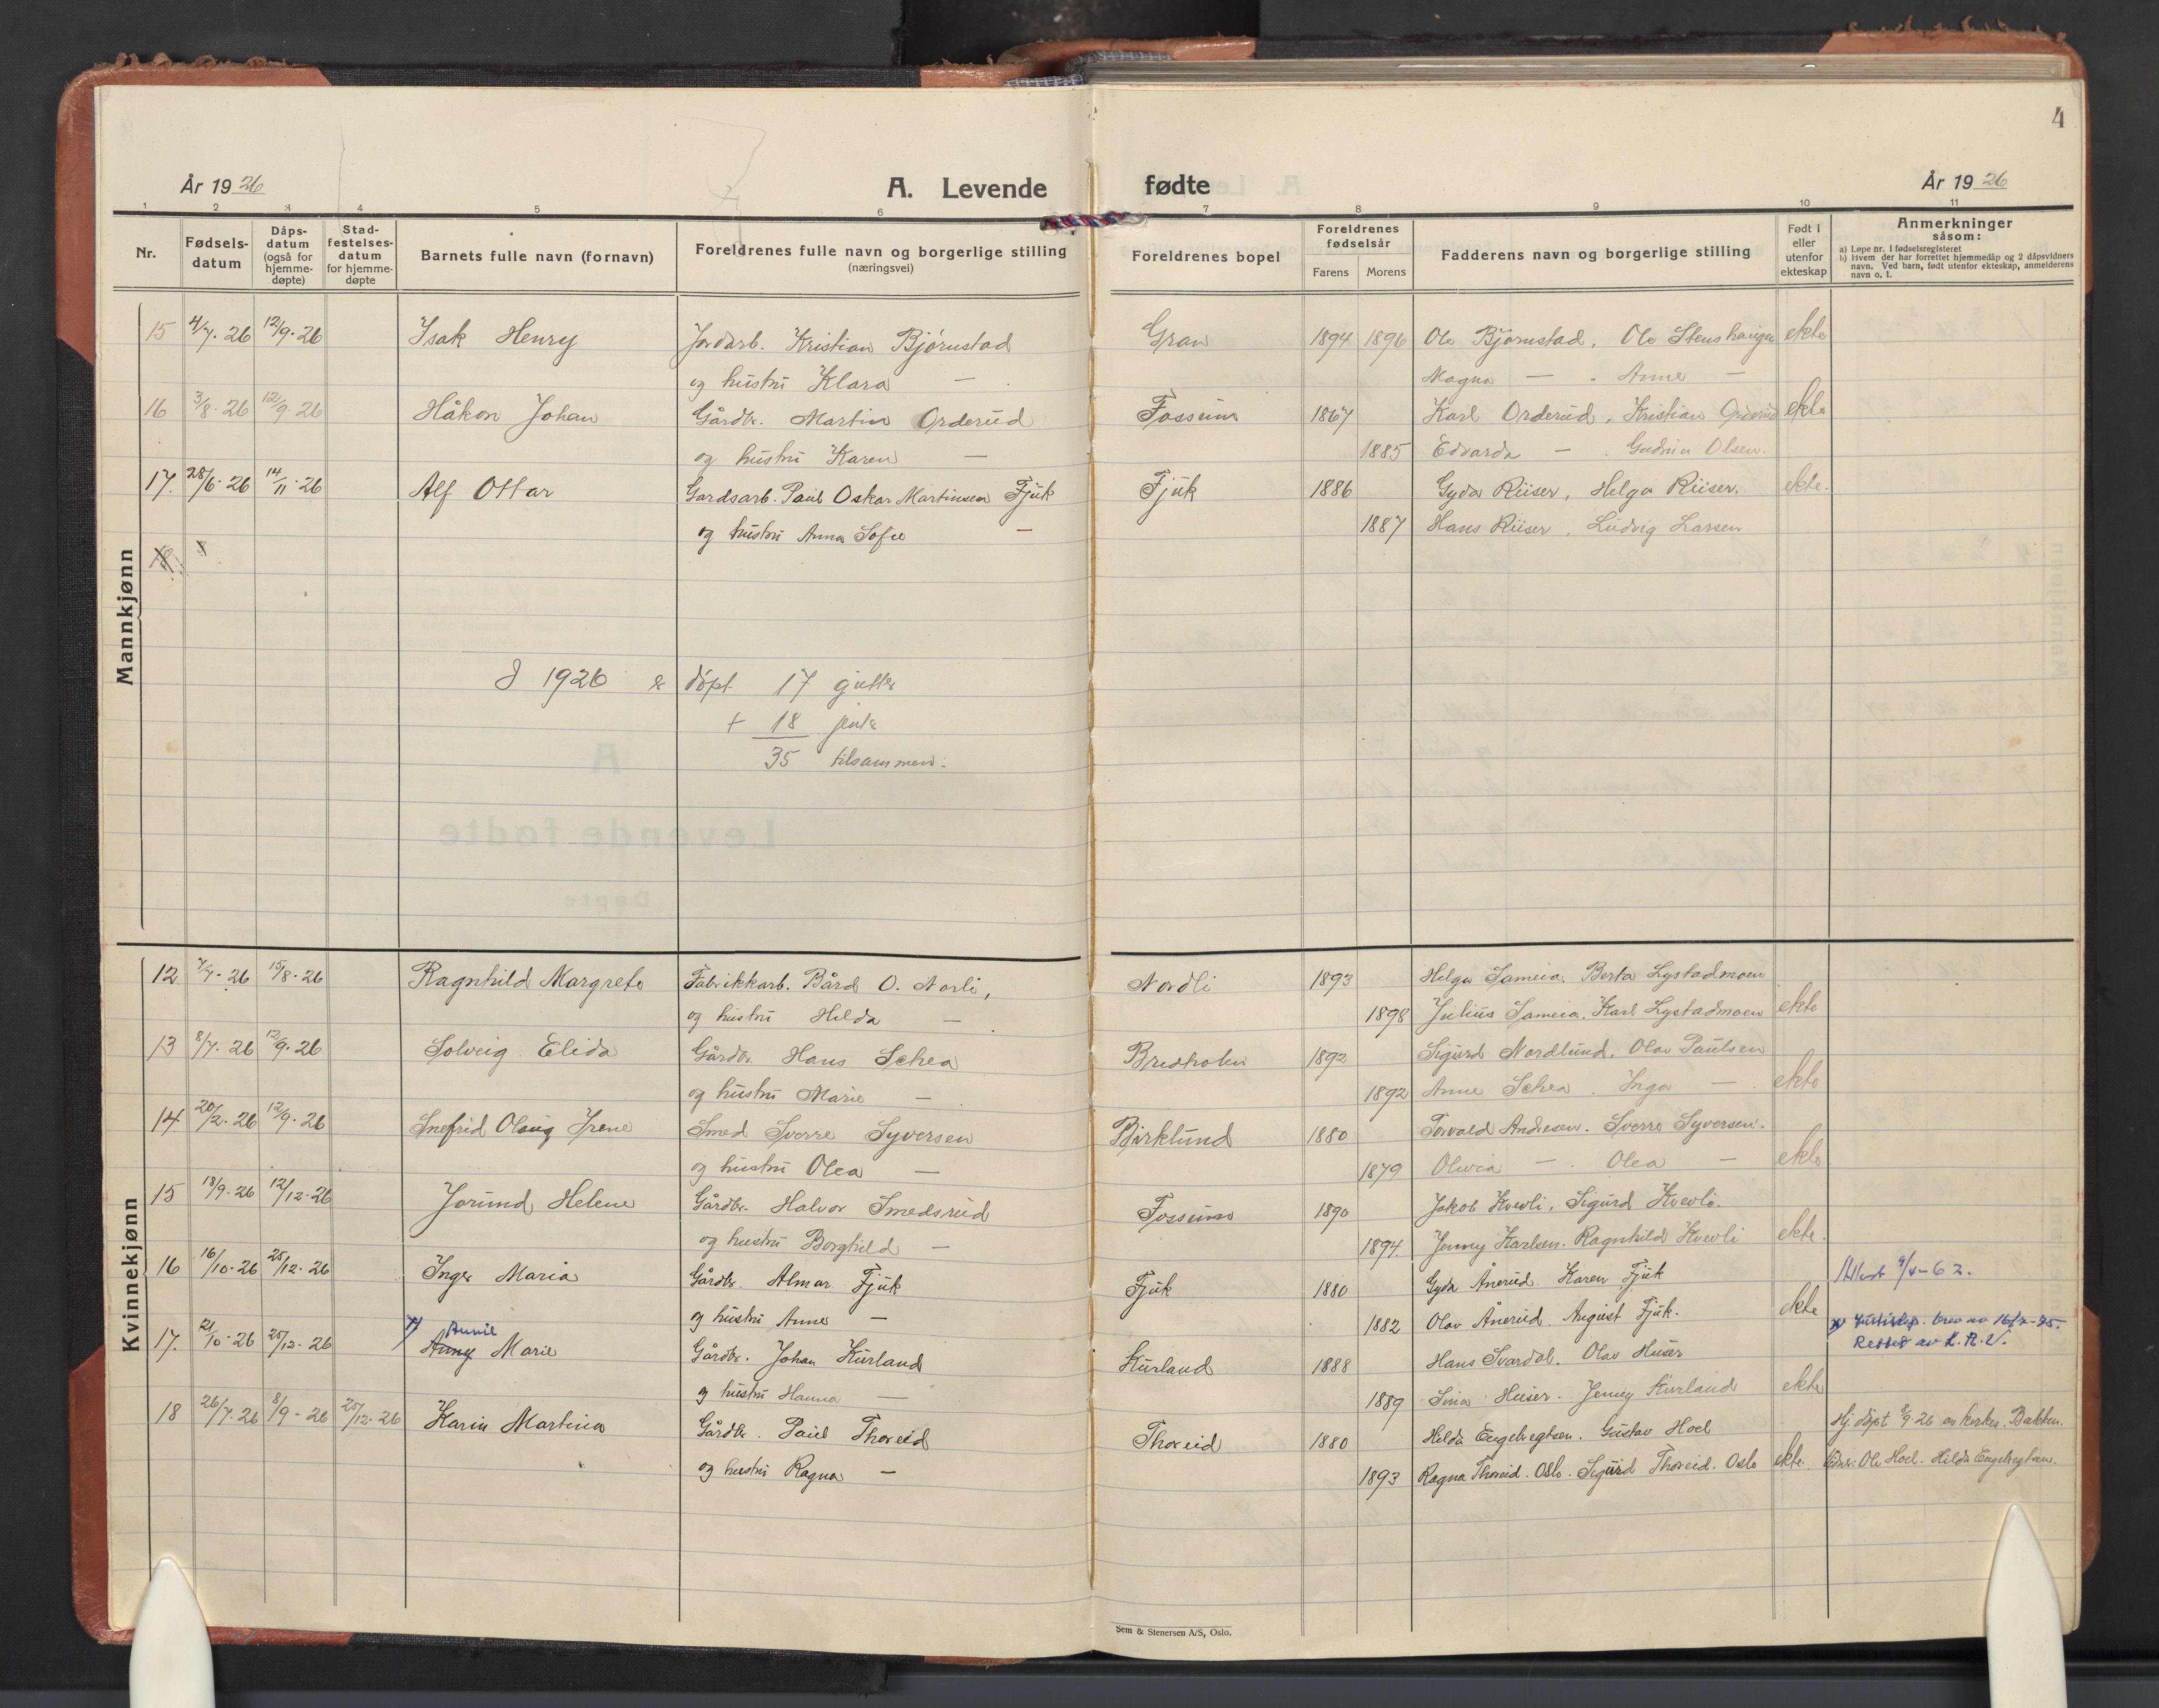 4
År 1926
A. Levende fødte
År 1926
1 2 3 4 5 6 7 8 9 10 11
Nr.
Fødsels-
datum
Dåps-
datum
(også for
hjemme-
døpte)
Stad-
festelses-
datum
for hjemme-
døpte
Barnets fulle navn (fornavn)
Foreldrenes fulle navn og borgerlige stilling
(næringsvei)
Foreldrenes bopel
Foreldrenes
fødselsår
Farens Morens
Fadderens navn og borgerlige stilling
Født i
eller
utenfor
ekteskap
Anmerkninger
såsom:
a) Løpe nr. i fødselsregisteret
b) Hvem der har forrettet hjemmedåp og 2 dåpsvidners
navn. Ved barn, født utenfor ekteskap, anmelderens
navn o. l.
Mannkjønn
15 4/7. 26 12/9. 26 Isak Henry Jordarb. Kristian Bjørnstad Gran 1894 1896 Ole Bjørnstad, Ole Stenshaugen ekte
og hustru Klara — Magna — . Anne —
16 3/8. 26 12/9. 26 Håkon Johan Gårdbr. Martin Orderud Fossum 1867 Karl Orderud, Kristian Orderud ekte
og hustru Karen — 1885 Edvarda — . Gudrun Olsen.
17. 28/6. 26 14/11. 26 Alf Ottar Gardsarb. Paul Oskar Martinsen Fjuk Fjuk 1886 Gyda Riiser, Helga Riiser. ekte.
og hustru Anna Sofie — 1887 Hans Riiser, Ludvig Larsen
18.
I 1926 er døpt 17 gutter
+ 18 jenter
35 tilsammen.
Kvinnekjønn
12 7/7. 26 15/8. 26 Ragnhild Margrete Fabrikkarb. Bård O. Norli, Nordli 1893 Helga Sameia. Berta Lystadmoen
og hustru Hilda — 1898 Julius Sameia. Karl Lystadmoen ekte
13 8/7. 26 12/9. 26 Solveig Elida Gårdbr. Hans Schea Bredholen 1892 Sigurd Nordlund. Olav Paulsen
og hustru Marie — 1892 Anne Schea . Inga — . ekte
14. 20/2. 26 12/9. 26 Snefrid Olaug Irene Smed Sverre Syversen Birklund 1880 Torvald Andresen. Sverre Syversen.
og hustru Olea — 1879 Olivia — . Olea — ekte
15 13/9. 26 12/12. 26 Jorund Helene Gårdbr. Halvor Smedsrud Fossum 1890 Jakob Kvevli, Sigurd Kvevli.
og hustru Borghild — 1894. Jenny Karlsen. Ragnhild Kvevli ekte.
16 16/10. 26 25/12. 26 Inger Maria Gårdbr. Almar Fjuk Fjuk 1880 Gyda Ånerud. Karen Fjuk Attest 9/4-62.
og hustru Anna — 1882 Olav Ånerud. August Fjuk. ekte
Annie
17. 21/10. 26 25/12. 26 Anny Marie Gårdbr. Johan Kurland Kurland 1888 Hans Svardal. Olav Huser x) Justisdep. brev av 16/2-25.
Rettet av
og hustru Hanna — 1889 Sina Huser. Jenny Kurland ekte
18 26/7. 26 8/9 - 26 25/12. 26 Karin Martina Gårdbr. Paul Thoreid Thoreid 1880 Hilda Engebregtsen. Gustav Hoel Hj.døpt 8/9. 26 av kirkes. Bakken.
og hustru Ragna — 1893 Ragna Thoreid. Oslo. Sigurd Thoreid. Oslo ekte. Vidner: Ole Hoel. Hilda Engebregtsen.
Sem & Stenersen A/S, Oslo.